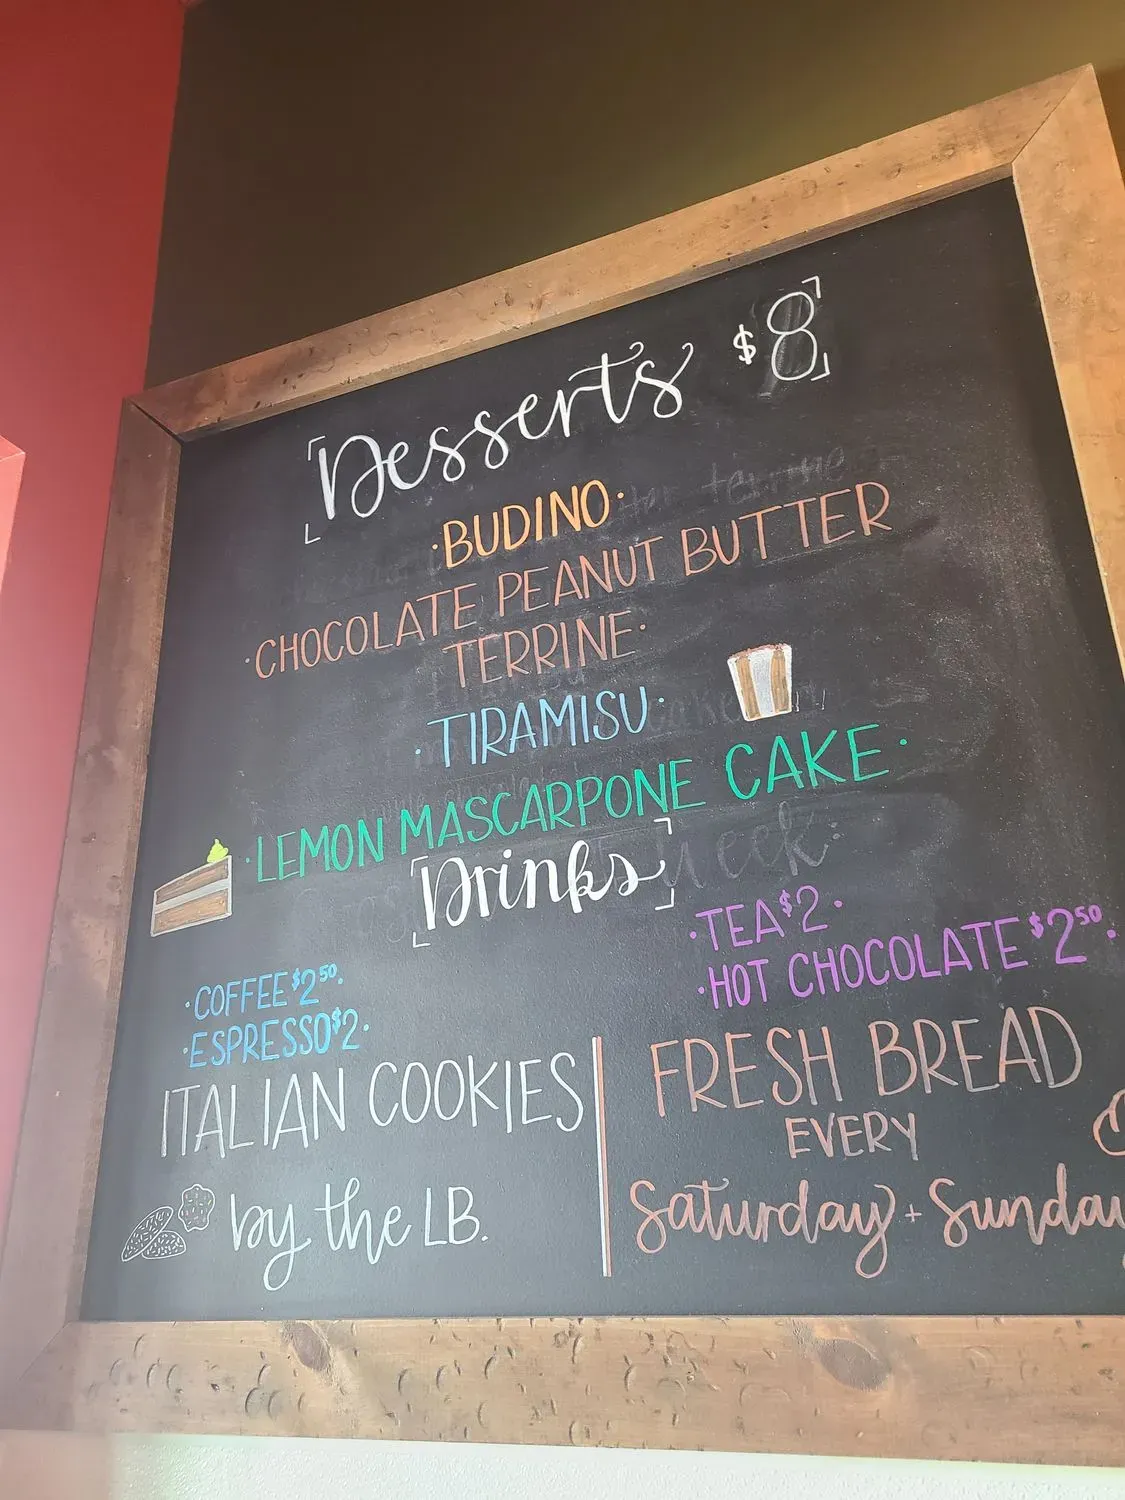 Desserts $8
·BUDINO·
·CHOCOLATE PEANUT BUTTER
TERRINE·
·TIRAMISU·
·LEMON MASCARPONE CAKE·
Drinks
·COFFEE $2.50·
·ESPRESSO $2·
·TEA $2·
·HOT CHOCOLATE $2.50·
ITALIAN COOKIES
by the LB.
FRESH BREAD
EVERY
Saturday + Sunday